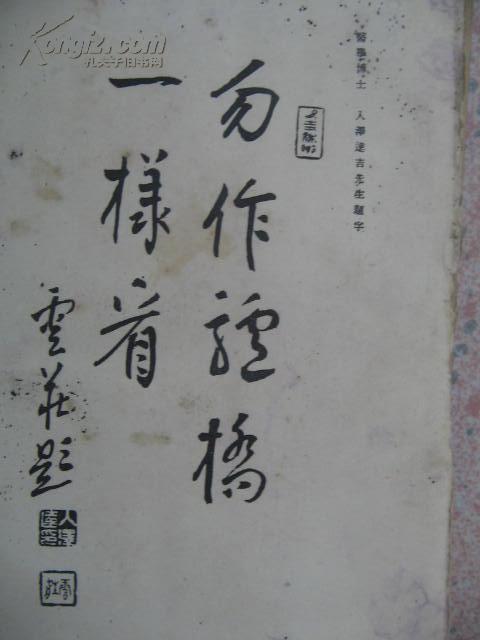 Kongfz.com
孔夫子旧书网
醫學博士 入澤達吉先生題字
勿作驢橋
一樣看
雲莊題
入澤達吉
雲莊